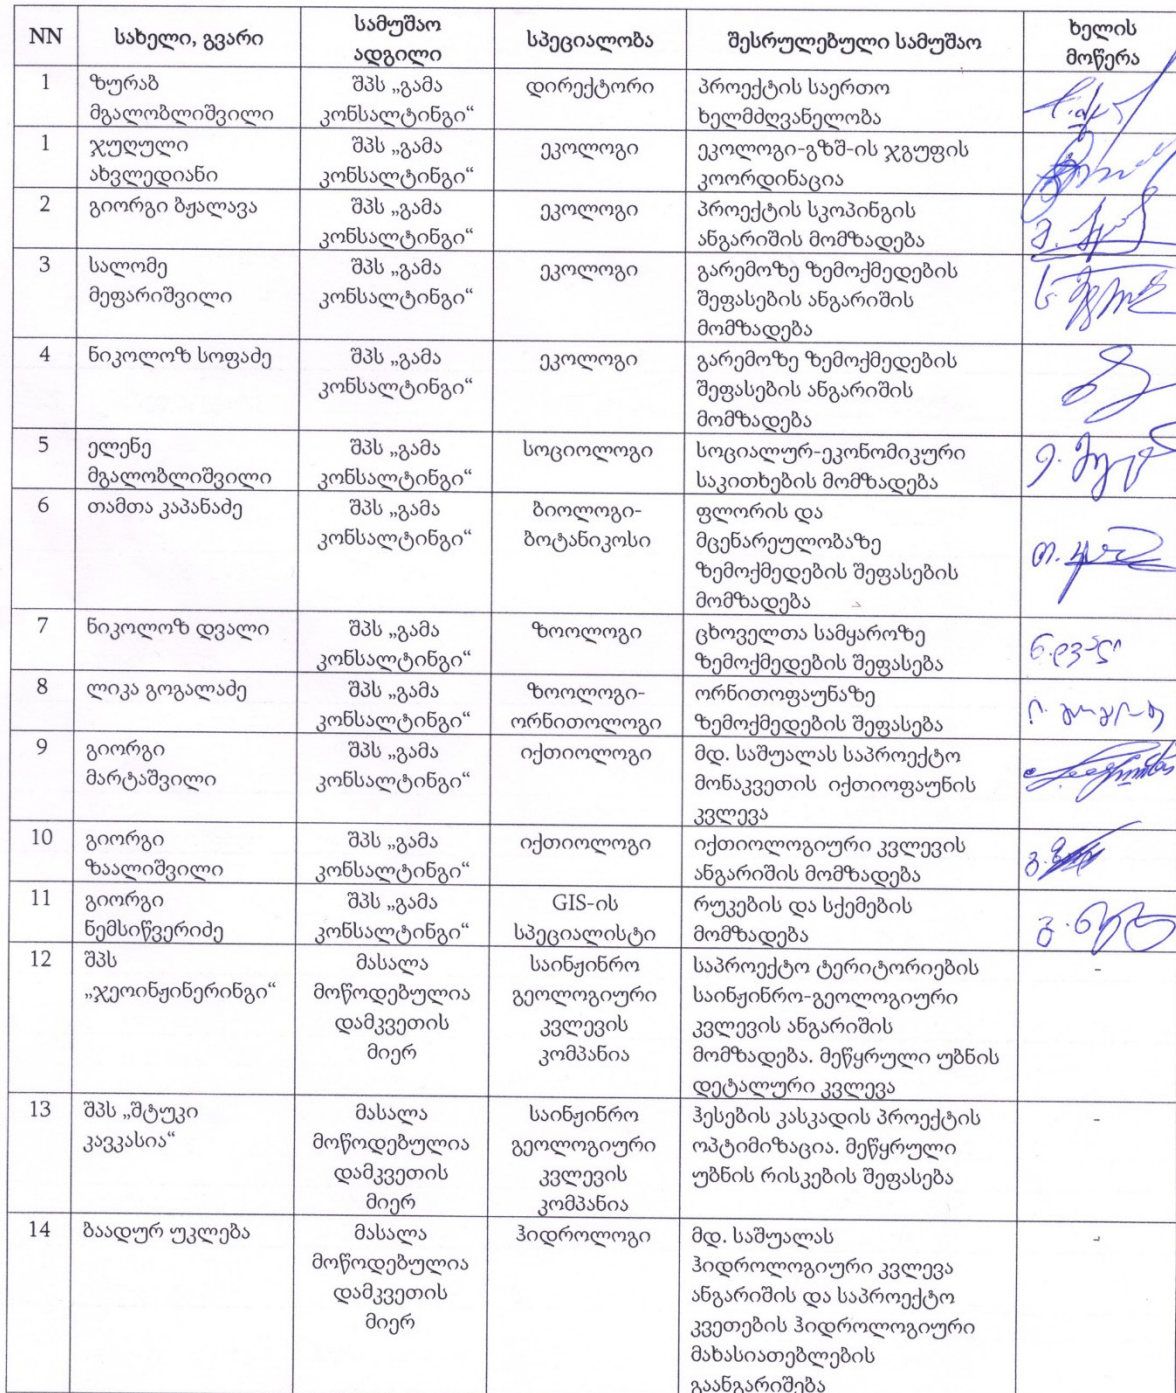 NN სახელი, გვარი სამუშაო ადგილი სპეციალობა შესრულებული სამუშაო ხელის მოწერა
1 ზურაბ მგალობლიშვილი შპს „გამა კონსალტინგი“ დირექტორი პროექტის საერთო ხელმძღვანელობა
1 ჯუღული ახვლედიანი შპს „გამა კონსალტინგი“ ეკოლოგი ეკოლოგი-გზშ-ის ჯგუფის კოორდინაცია
2 გიორგი ბჟალავა შპს „გამა კონსალტინგი“ ეკოლოგი პროექტის სკოპინგის ანგარიშის მომზადება
3 სალომე მეფარიშვილი შპს „გამა კონსალტინგი“ ეკოლოგი გარემოზე ზემოქმედების შეფასების ანგარიშის მომზადება
4 ნიკოლოზ სოფაძე შპს „გამა კონსალტინგი“ ეკოლოგი გარემოზე ზემოქმედების შეფასების ანგარიშის მომზადება
5 ელენე მგალობლიშვილი შპს „გამა კონსალტინგი“ სოციოლოგი სოციალურ-ეკონომიკური საკითხების მომზადება
6 თამთა კაპანაძე შპს „გამა კონსალტინგი“ ბიოლოგი-ბოტანიკოსი ფლორის და მცენარეულობაზე ზემოქმედების შეფასების მომზადება
7 ნიკოლოზ დვალი შპს „გამა კონსალტინგი“ ზოოლოგი ცხოველთა სამყაროზე ზემოქმედების შეფასება ნ.დვალი
8 ლიკა გოგალაძე შპს „გამა კონსალტინგი“ ზოოლოგი-ორნითოლოგი ორნითოფაუნაზე ზემოქმედების შეფასება
9 გიორგი მარტაშვილი შპს „გამა კონსალტინგი“ იქთიოლოგი მდ. საშუალას საპროექტო მონაკვეთის იქთიოფაუნის კვლევა
10 გიორგი ზაალიშვილი შპს „გამა კონსალტინგი“ იქთიოლოგი იქთიოლოგიური კვლევის ანგარიშის მომზადება
11 გიორგი ნემსიწვერიძე შპს „გამა კონსალტინგი“ GIS-ის სპეციალისტი რუკების და სქემების მომზადება
12 შპს „ჯეოინჟინერინგი“ მასალა მოწოდებულია დამკვეთის მიერ საინჟინრო გეოლოგიური კვლევის კომპანია საპროექტო ტერიტორიების საინჟინრო-გეოლოგიური კვლევის ანგარიშის მომზადება. მეწყრული უბნის დეტალური კვლევა -
13 შპს „შტუკი კავკასია“ მასალა მოწოდებულია დამკვეთის მიერ საინჟინრო გეოლოგიური კვლევის კომპანია ჰესების კასკადის პროექტის ოპტიმიზაცია. მეწყრული უბნის რისკების შეფასება -
14 ბაადურ უკლება მასალა მოწოდებულია დამკვეთის მიერ ჰიდროლოგი მდ. საშუალას ჰიდროლოგიური კვლევა ანგარიშის და საპროექტო კვეთების ჰიდროლოგიური მახასიათებლების გაანგარიშება -